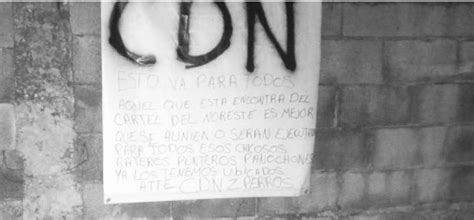 CDN
ESTO VA PARA TODOS
AQUEL QUE ESTA ENCONTRA DEL
CARTEL DEL NORESTE ES MEJOR
QUE SE ALINIEN O SERAN EJECUTA
PARA TODOS ESOS CHOSOS
RATEROS PUNTEROS PANOCHONES
YA LOS TENEMOS UBICADOS
ATTE CDN Z PERROS